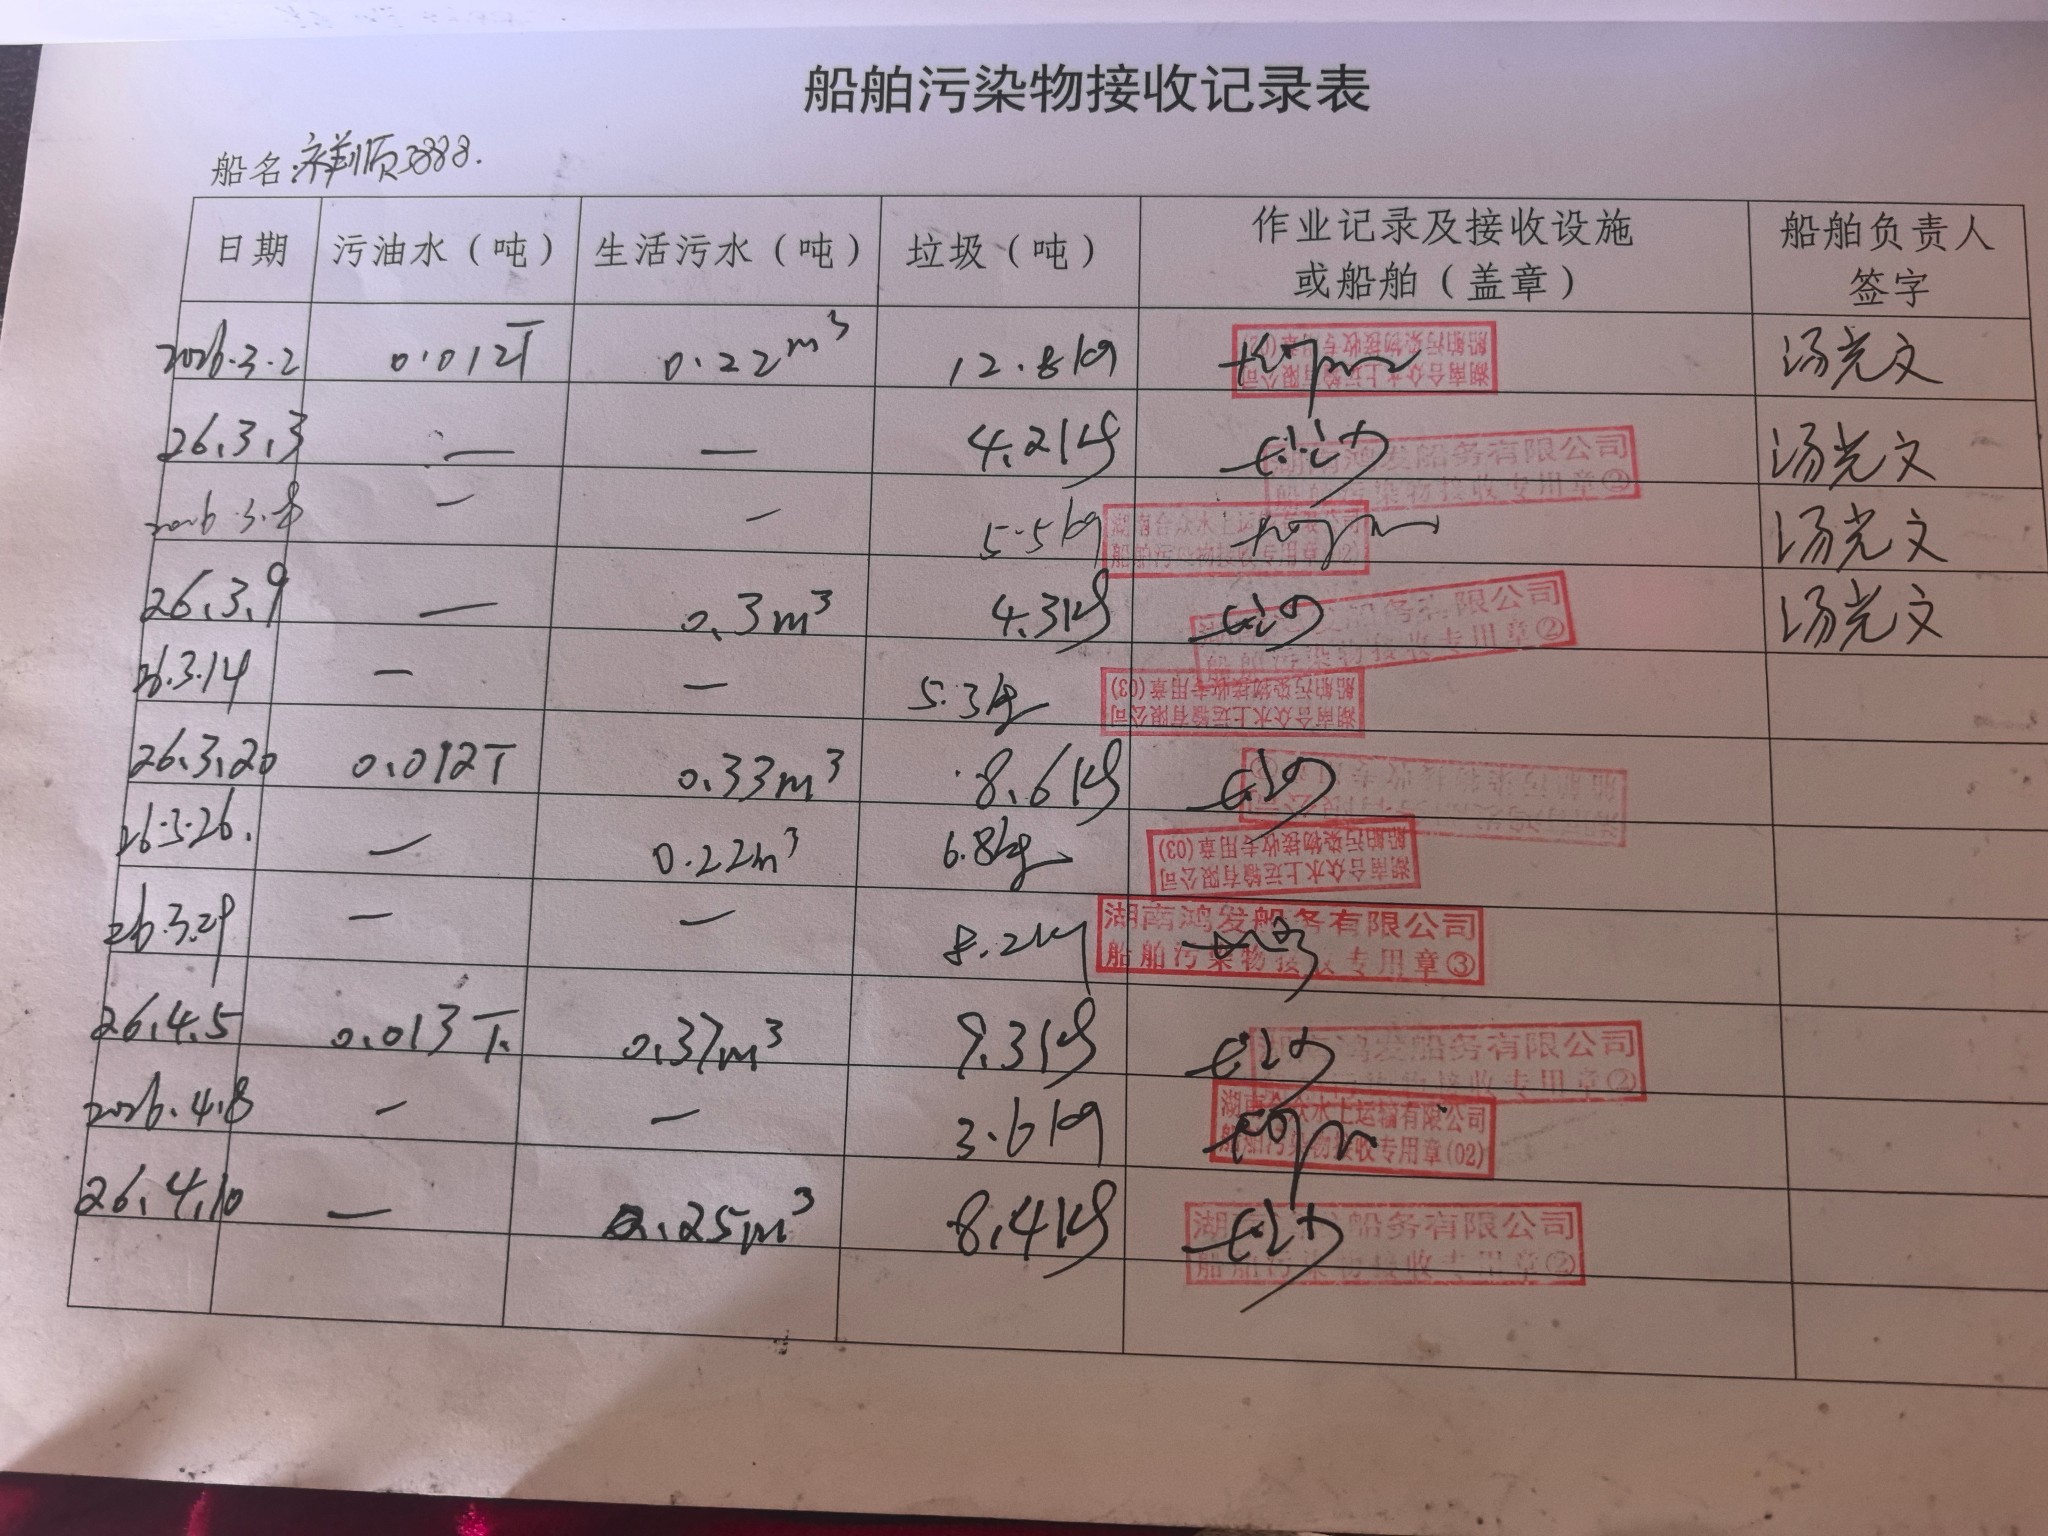 船舶污染物接收记录表
船名:祥顺3888.
日期 污油水（吨） 生活污水（吨） 垃圾（吨） 作业记录及接收设施或船舶（盖章） 船舶负责人签字
2026.3.2 0.012T 0.22m³ 12.8kg 湖南合众水上运输有限公司 船舶污染物接收专用章(02) 汤光文
26.3.3 — — 4.2kg 湖南鸿发船务有限公司 船舶污染物接收专用章② 汤光文
2026.3.8 — — 5.5kg 湖南合众水上运输有限公司 船舶污染物接收专用章(02) 汤光文
26.3.9 — 0.3m³ 4.3kg 船务有限公司 船舶污染物接收专用章② 汤光文
26.3.14 — — 5.3kg 湖南合众水上运输有限公司 船舶污染物接收专用章(03)
26.3.20 0.012T 0.33m³ 8.6kg 湖南鸿发船务有限公司 船舶污染物接收专用章
26.3.26. — 0.22m³ 6.8kg 湖南合众水上运输有限公司 船舶污染物接收专用章(03)
26.3.29 — — 8.2kg 湖南鸿发船务有限公司 船舶污染物接收专用章③
26.4.5 0.013T. 0.37m³ 9.3kg 鸿发船务有限公司 污染物接收专用章②
2026.4.8 — — 3.6kg 湖南合众水上运输有限公司 船舶污染物接收专用章(02)
26.4.10 — 0.25m³ 8.4kg 湖 船务有限公司 船舶污染物接收专用章②